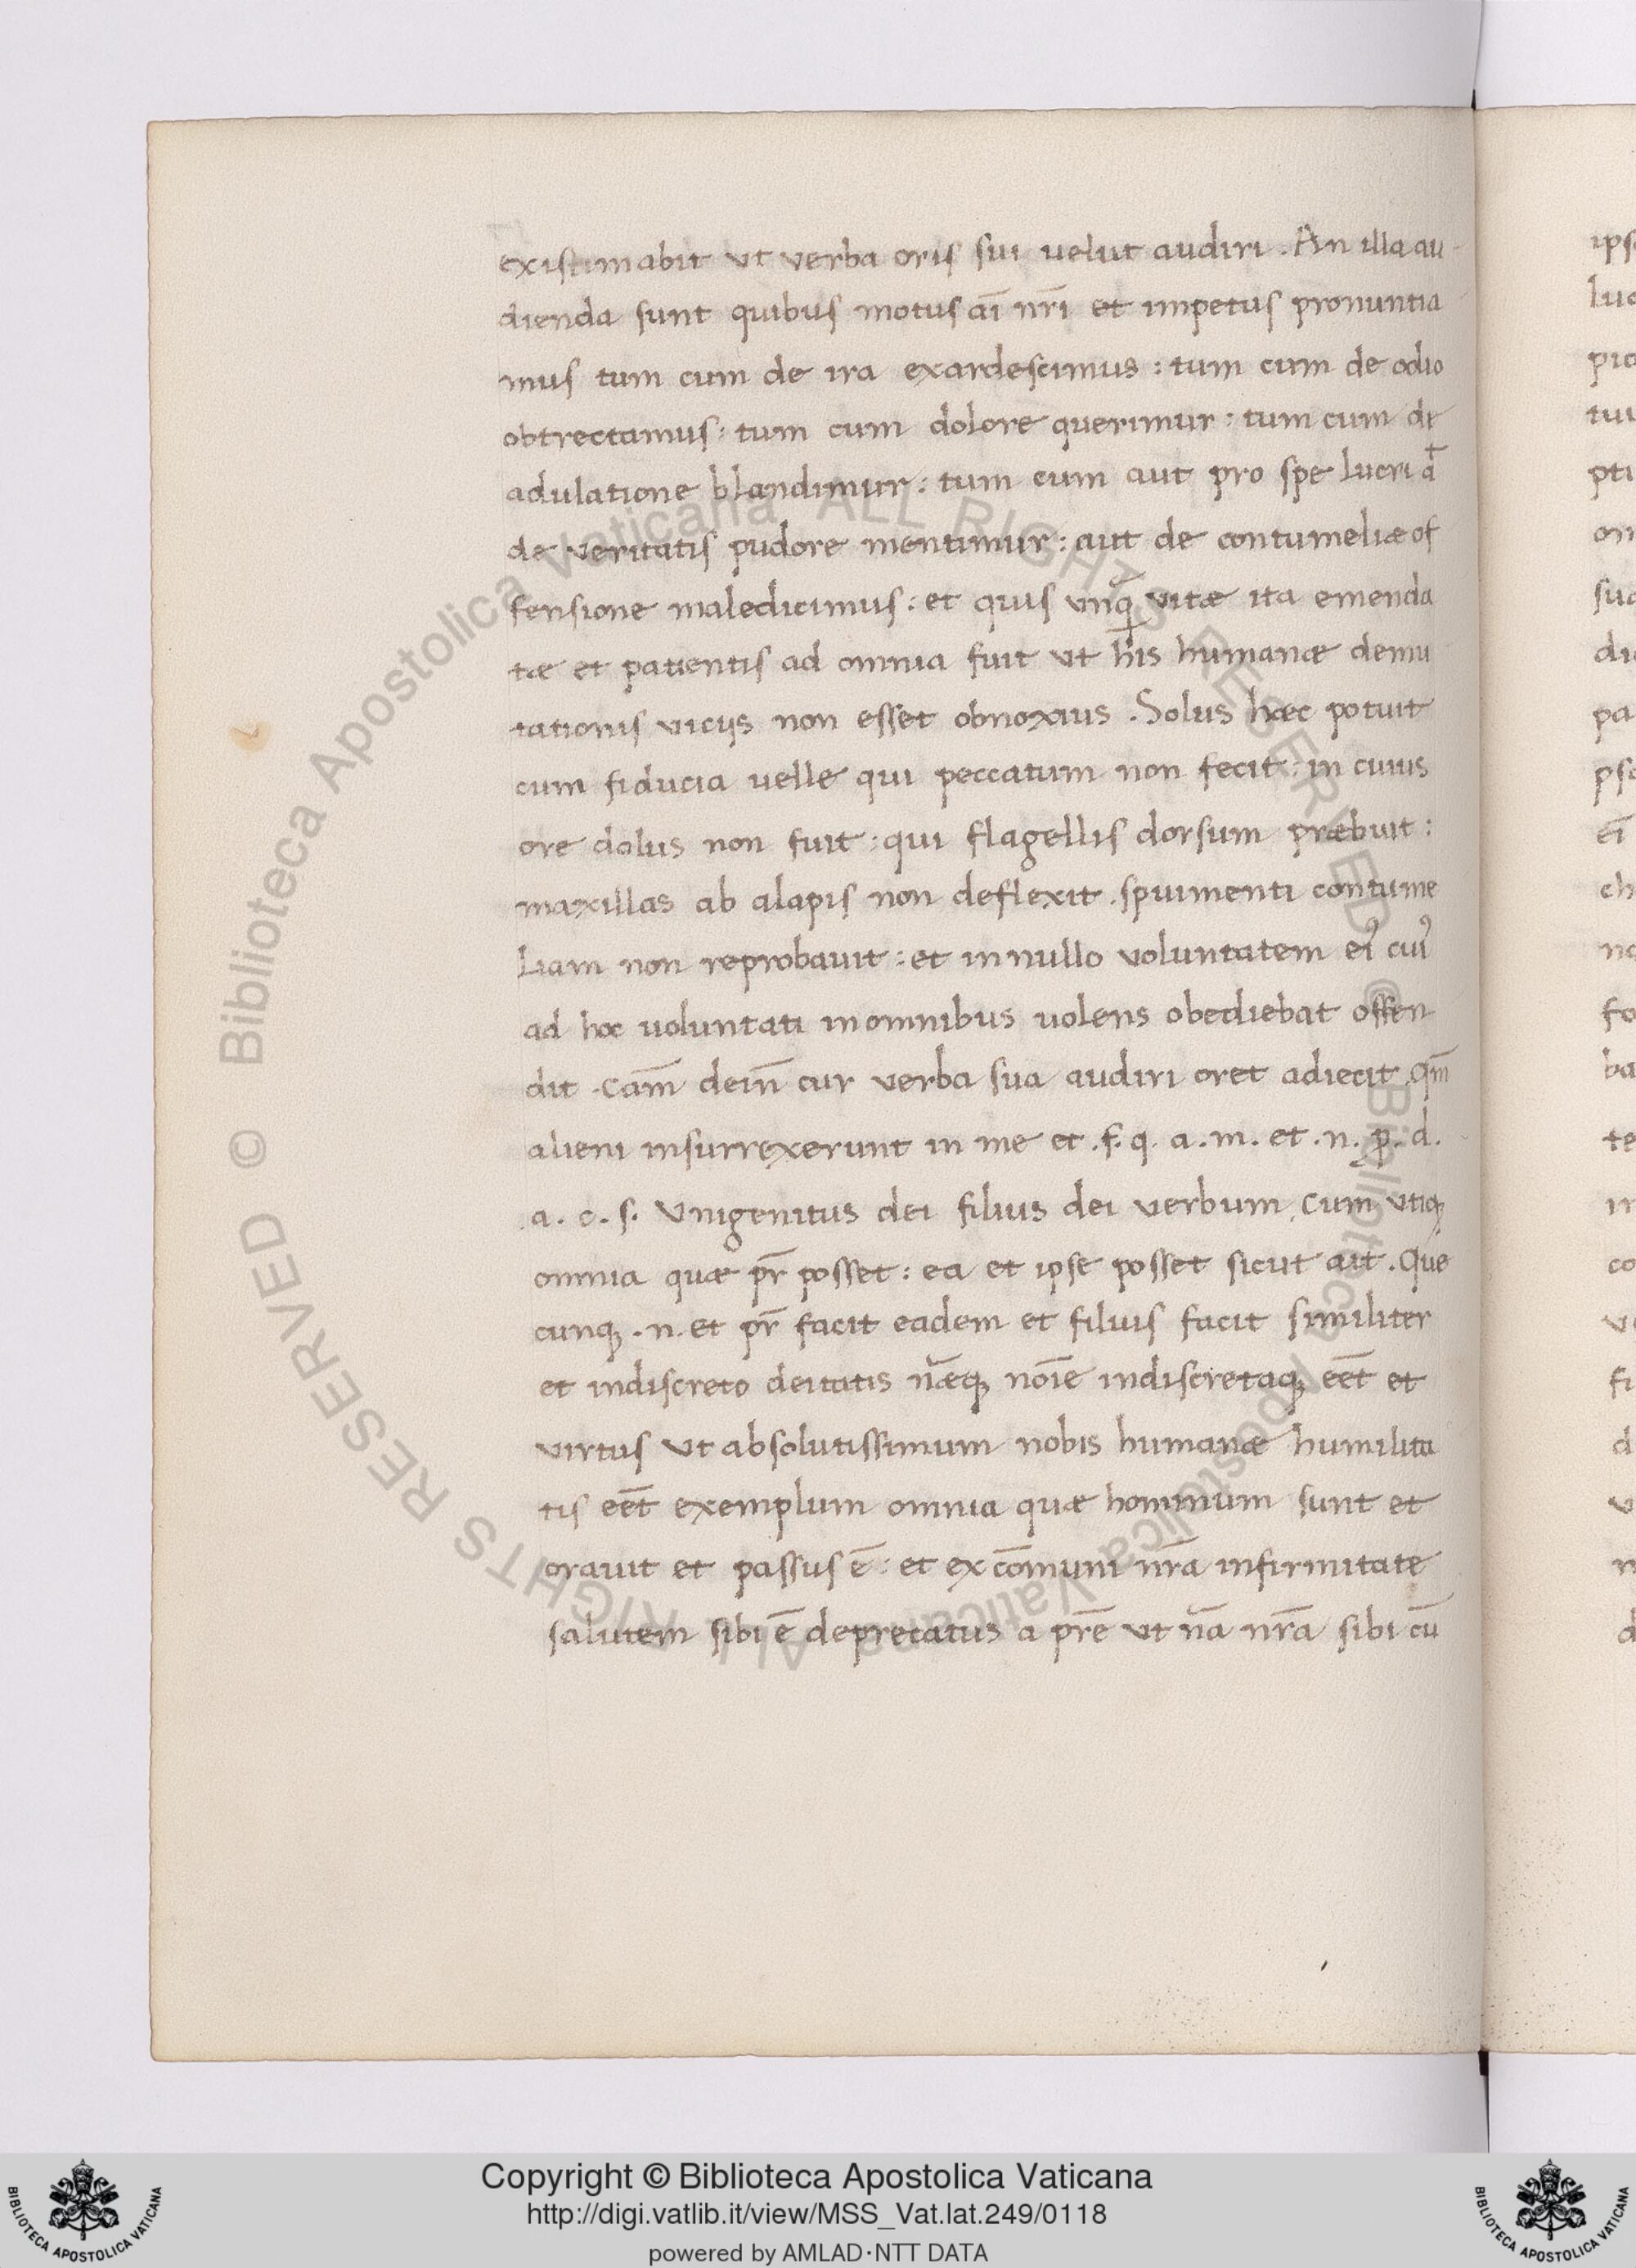 existimabit ut verba oris sui uelut audiri. An illa au-
dienda sunt quibus motus aī nr̄i et impetus pronuntia
mus tum cum de ira exardescimus : tum cum de odio
obtrectamus: tum cum dolore querimur : tum cum de
adulatione blandimur : tum cum aut pro spe lucri a᷒t
de veritatis pudore mentimur : aut de contumeliæ of
fensione maledicimus : et quis unq̄ vitæ ita emenda
tæ et patientis ad omnia fuit ut his humanæ demu
tationis viciis non esset obnoxius . Solus hæc potuit
cum fiducia uelle qui peccatum non fecit : in cuius
ore dolus non fuit : qui flagellis dorsum præbuit :
maxillas ab alapis non deflexit . spuimenti contume
liam non reprobauit : et in nullo voluntatem eiꝰ cuiꝰ
ad hoc uoluntati in omnibus uolens obediebat offen
dit . cam̄ dein̄ cur verba sua audiri oret adiecit . qm̄
alieni insurrexerunt in me et . f. q. a . m . et . n. p . d.
a . c . s. Unigenitus dei filius dei verbum . cum utiqꝫ
omnia quæ pr̄ posset : ea et ipse posset sicut ait . Que
cunqꝫ . n . et pr̄ facit eadem et filius facit similiter
et indiscreto deitatis nāeqꝫ noīe indiscretaqꝫ eēt et
virtus ut absolutissimum nobis humanæ humilita
tis eēt exemplum omnia quæ hominum sunt et
orauit et passus ē : et ex cōmuni nr̄a infirmitate
salutem sibi ē deprecatus a prē ut nā nr̄a sibi cū
Copyright © Biblioteca Apostolica Vaticana
http://digi.vatlib.it/view/MSS_Vat.lat.249/0118
powered by AMLAD·NTT DATA
BIBLIOTECA APOSTOLICA VATICANA
BIBLIOTECA APOSTOLICA VATICANA